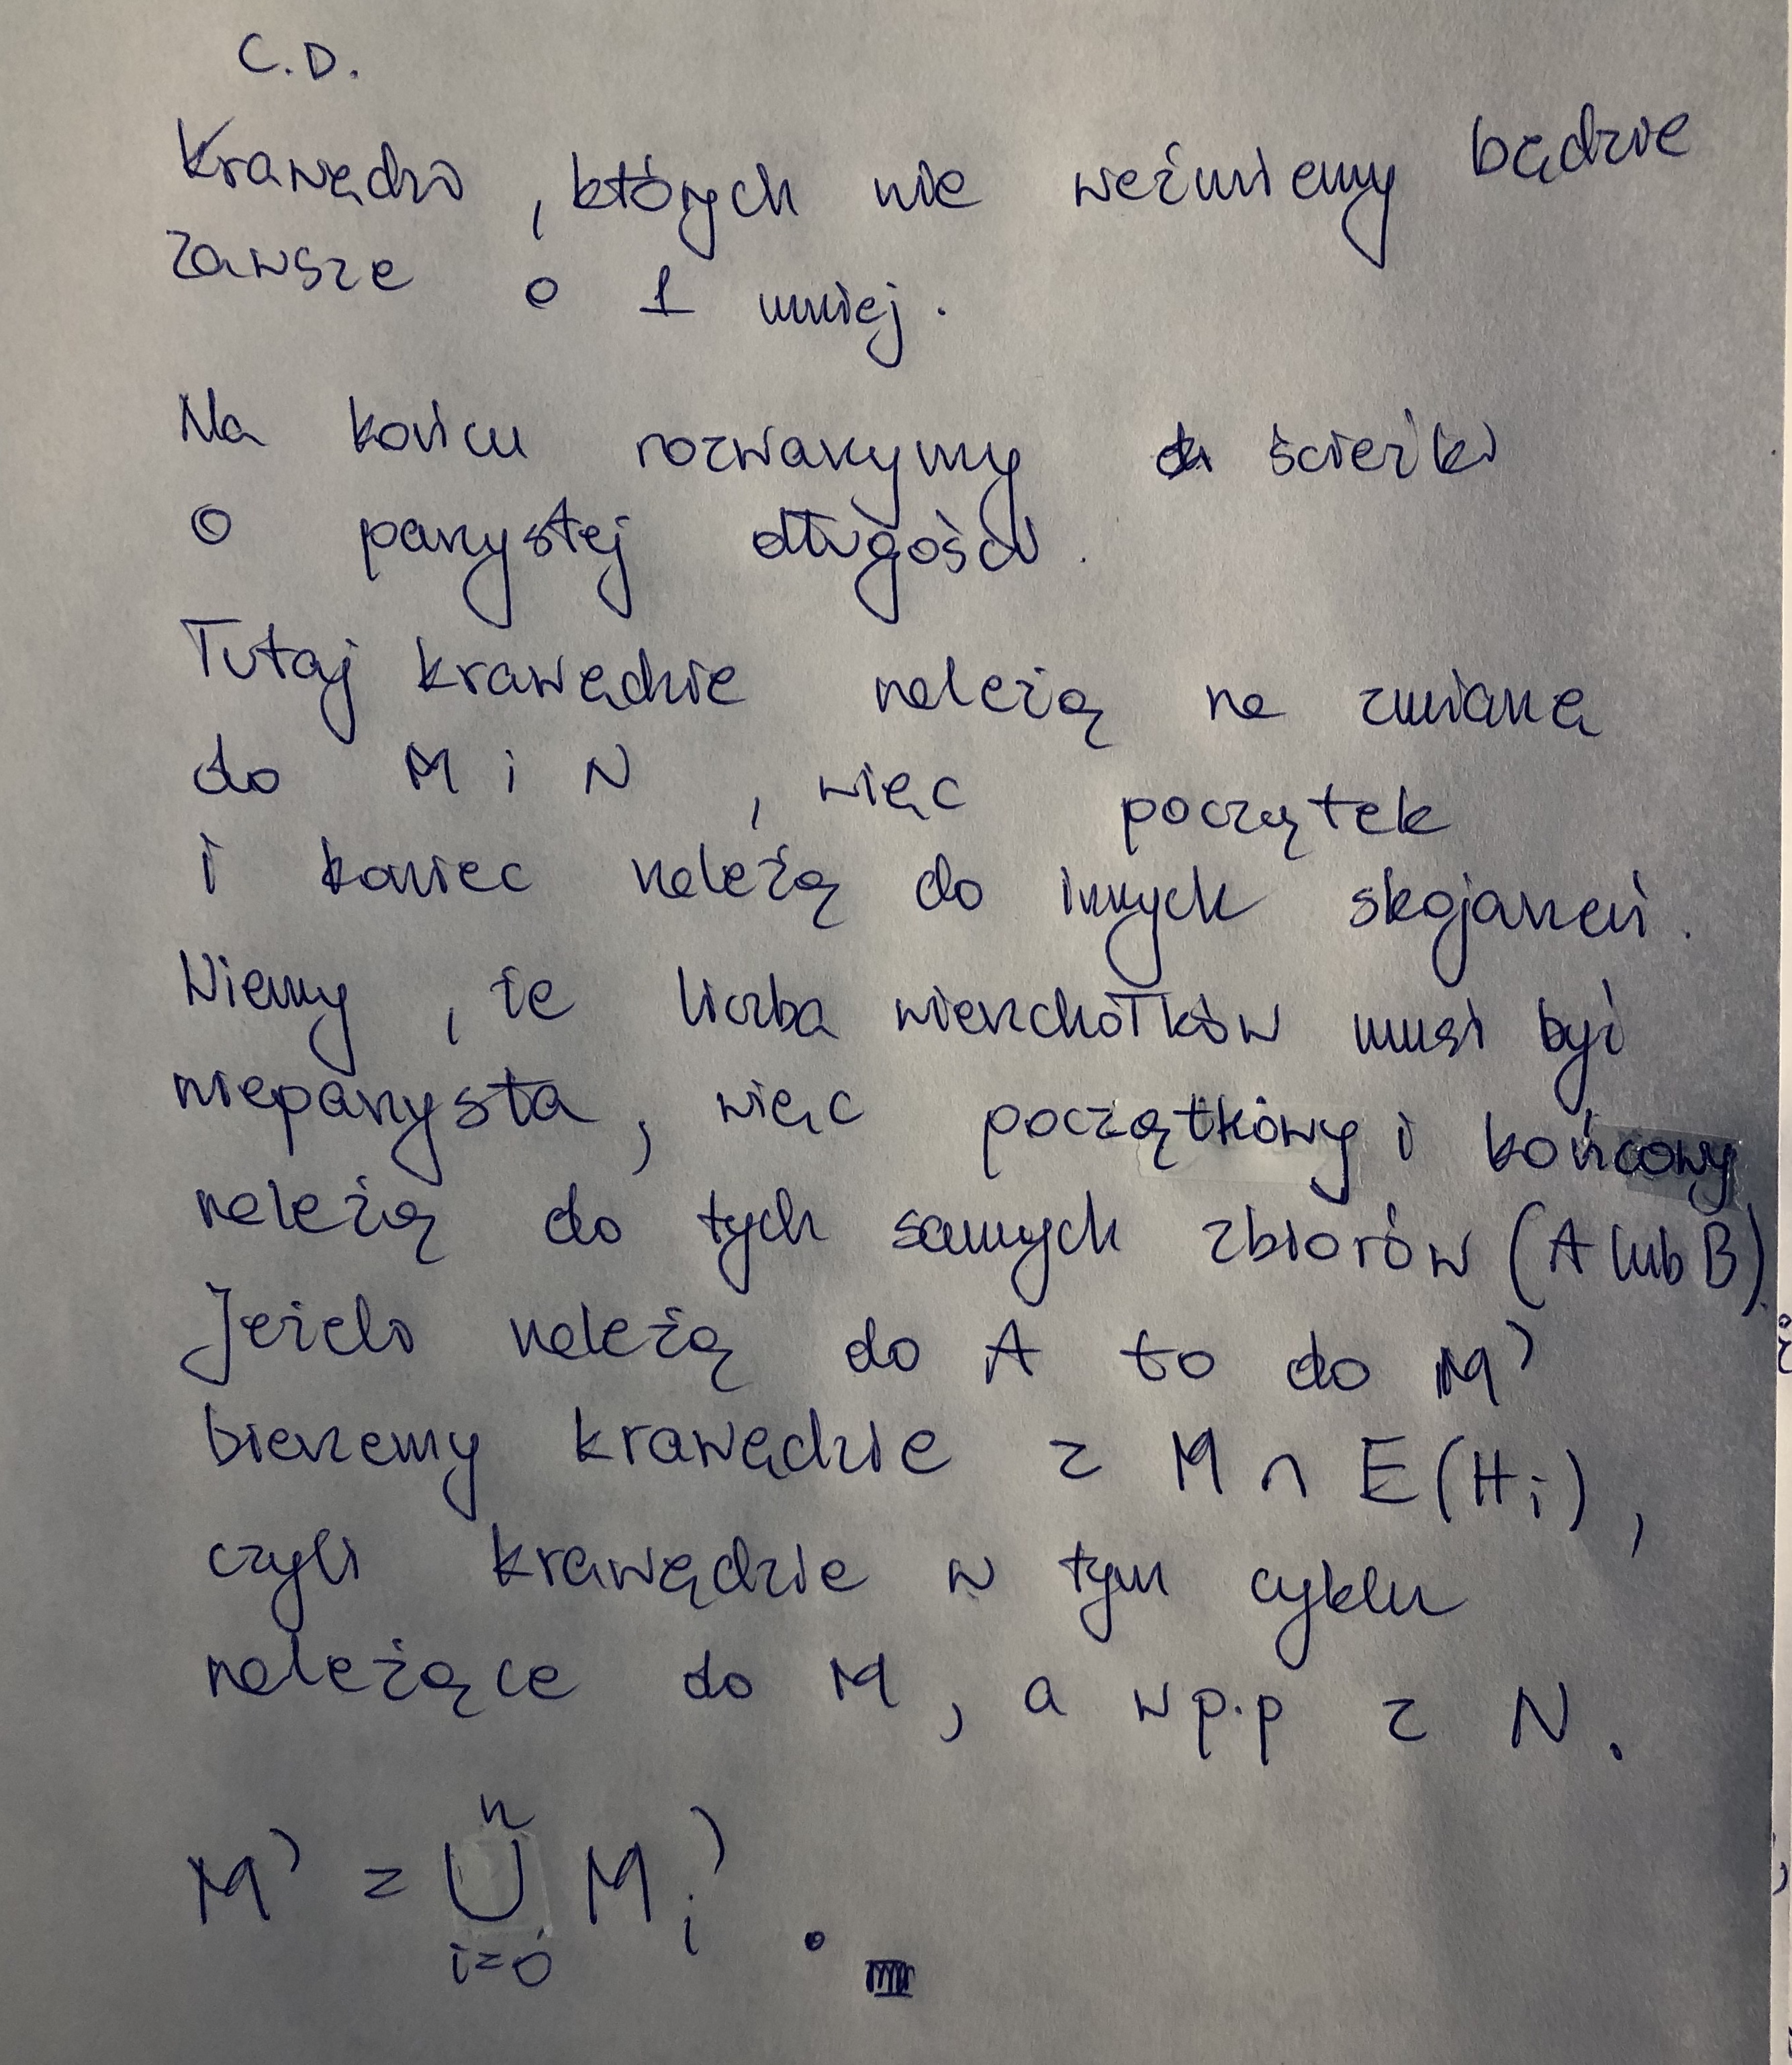 C.D.
Krawędzi, których nie weźmiemy będzie
zawsze o 1 mniej.
Na końcu rozważymy ścieżki
o parzystej długości.
Tutaj krawędzie należą na zmianę
do M i N, więc początek
i koniec należą do innych skojarzeń.
Wiemy, że liczba wierzchołków musi być
nieparzysta, więc początkowy i końcowy
należą do tych samych zbiorów (A lub B).
Jeżeli należą do A to do M'
bierzemy krawędzie z M ∩ E(Hi),
czyli krawędzie w tym cyklu
należące do M, a w p.p z N.
n
M' = ∪ Mi'.
i=0